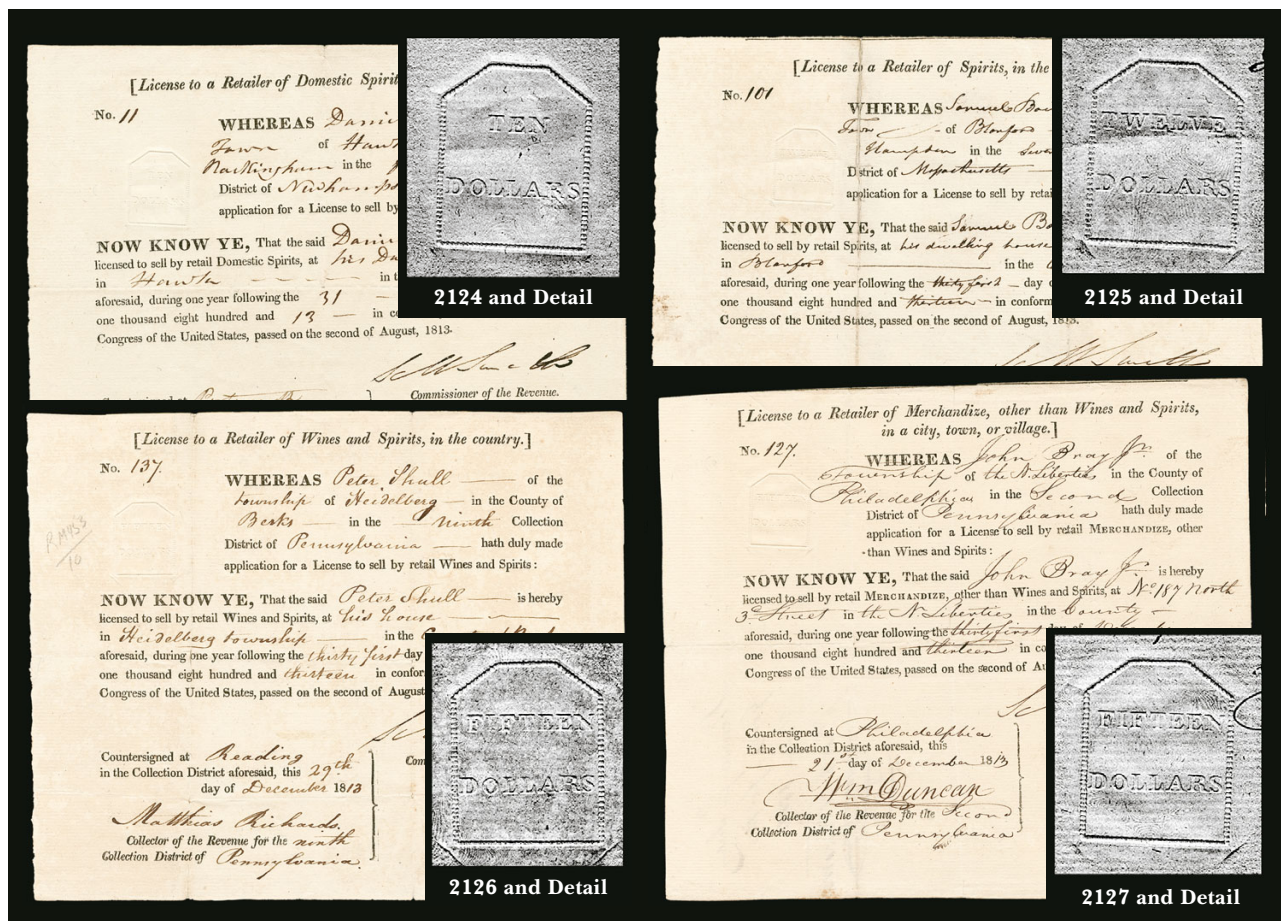 [License to a Retailer of Domestic Spirit
No. 11
WHEREAS
Town of
Rockingham in the
District of
application for a License to sell by
NOW KNOW YE, That the said
licensed to sell by retail Domestic Spirits, at his
in
aforesaid, during one year following the 31
one thousand eight hundred and 13 in
Congress of the United States, passed on the second of August, 1813.
Commissioner of the Revenue.
TEN
DOLLARS
2124 and Detail
[License to a Retailer of Spirits, in the
No. 101
WHEREAS Samuel
Town of Blanford
Hampden in the
District of
application for a License to sell by retai
NOW KNOW YE, That the said Samuel
licensed to sell by retail Spirits, at his dwelling house
in Blanford in the
aforesaid, during one year following the thirty first day
one thousand eight hundred and thirteen in conform
Congress of the United States, passed on the second of August, 1813.
TWELVE
DOLLARS
2125 and Detail
[License to a Retailer of Wines and Spirits, in the country.]
No. 137.
WHEREAS Peter Shull of the
township of Heidelberg in the County of
Berks in the ninth Collection
District of Pennsylvania hath duly made
application for a License to sell by retail Wines and Spirits :
NOW KNOW YE, That the said Peter Shull is hereby
licensed to sell by retail Wines and Spirits, at his house
in Heidelberg township in the
aforesaid, during one year following the thirty first day
one thousand eight hundred and thirteen in confor
Congress of the United States, passed on the second of August
Countersigned at Reading
in the Collection District aforesaid, this 29th
day of December 1813
Matthias Richards,
Collector of the Revenue for the ninth
Collection District of Pennsylvania.
Com
FIFTEEN
DOLLARS
2126 and Detail
[License to a Retailer of Merchandize, other than Wines and Spirits,
in a city, town, or village.]
No. 127.
WHEREAS John Bray Jr. of the
township of the N. Liberties in the County of
Philadelphia in the Second Collection
District of Pennsylvania hath duly made
application for a License to sell by retail MERCHANDIZE, other
than Wines and Spirits :
NOW KNOW YE, That the said John Bray Jr. is hereby
licensed to sell by retail MERCHANDIZE, other than Wines and Spirits, at No. 187 North
3d Street in the N. Liberties in the County
aforesaid, during one year following the thirty first day of
one thousand eight hundred and thirteen in co
Congress of the United States, passed on the second of Au
Countersigned at Philadelphia
in the Collection District aforesaid, this
21st day of December 1813
Wm Duncan
Collector of the Revenue for the Second
Collection District of Pennsylvania
FIFTEEN
DOLLARS
2127 and Detail